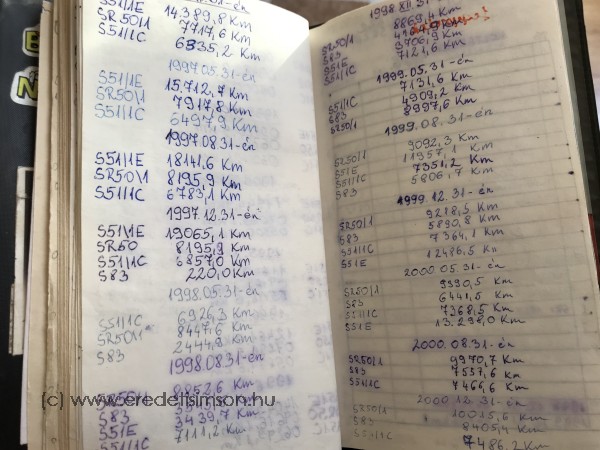 S51/1E 14.389,8 Km
SR50/1 7717,6 Km
S51/1C 6335,2 Km
1997.05.31-én
S51/1E 15.712,7 Km
SR50/1 7917,8 Km
S51/1C 6497,9 Km
1997.08.31-én
S51/1E 18141,6 Km
SR50/1 8195,9 Km
S51/1C 6783,1 Km
1997.12.31-én
S51/1E 19065,1 Km
SR50 8195,9 Km
S51/1C 6857,0 Km
S83 220,0 Km
1998.05.31-én
S51/1C 6926,3 Km
SR50/1 8447,6 Km
S83 2444,9 Km
1998.08.31-én
SR50/1 8852,6 Km
S83 3439,7 Km
S51E
S51/1C 7111,2 Km
(c) www.eredetisimson.hu
SR50/1 8869,4 Km
S83
S51E 9706,9 Km
S51/1C 7121,6 Km
1999.05.31-én
S51/1C 7131,6 Km
S83 4909,2 Km
SR50/1 8997,6 Km
1999.08.31-én
SR50/1 9092,3 Km
S51E 11957,1 Km
S51/1C 7351,2 Km
S83 5806,7 Km
1999.12.31-én
SR50/1 9218,5 Km
S83 5890,8 Km
S51/1C 7364,1 Km
S51E 12486,5 Km
2000.05.31-én
SR50/1 9390,5 Km
S83 6441,5 Km
S51/1C 7368,5 Km
S51E 13.298,0 Km
2000.08.31-én
SR50/1 9970,7 Km
S83 7557,6 Km
S51/1C 7466,6 Km
2000.12.31-én
SR50/1 10015,6 Km
S83 8405,4 Km
S51/1C 7486,2 Km